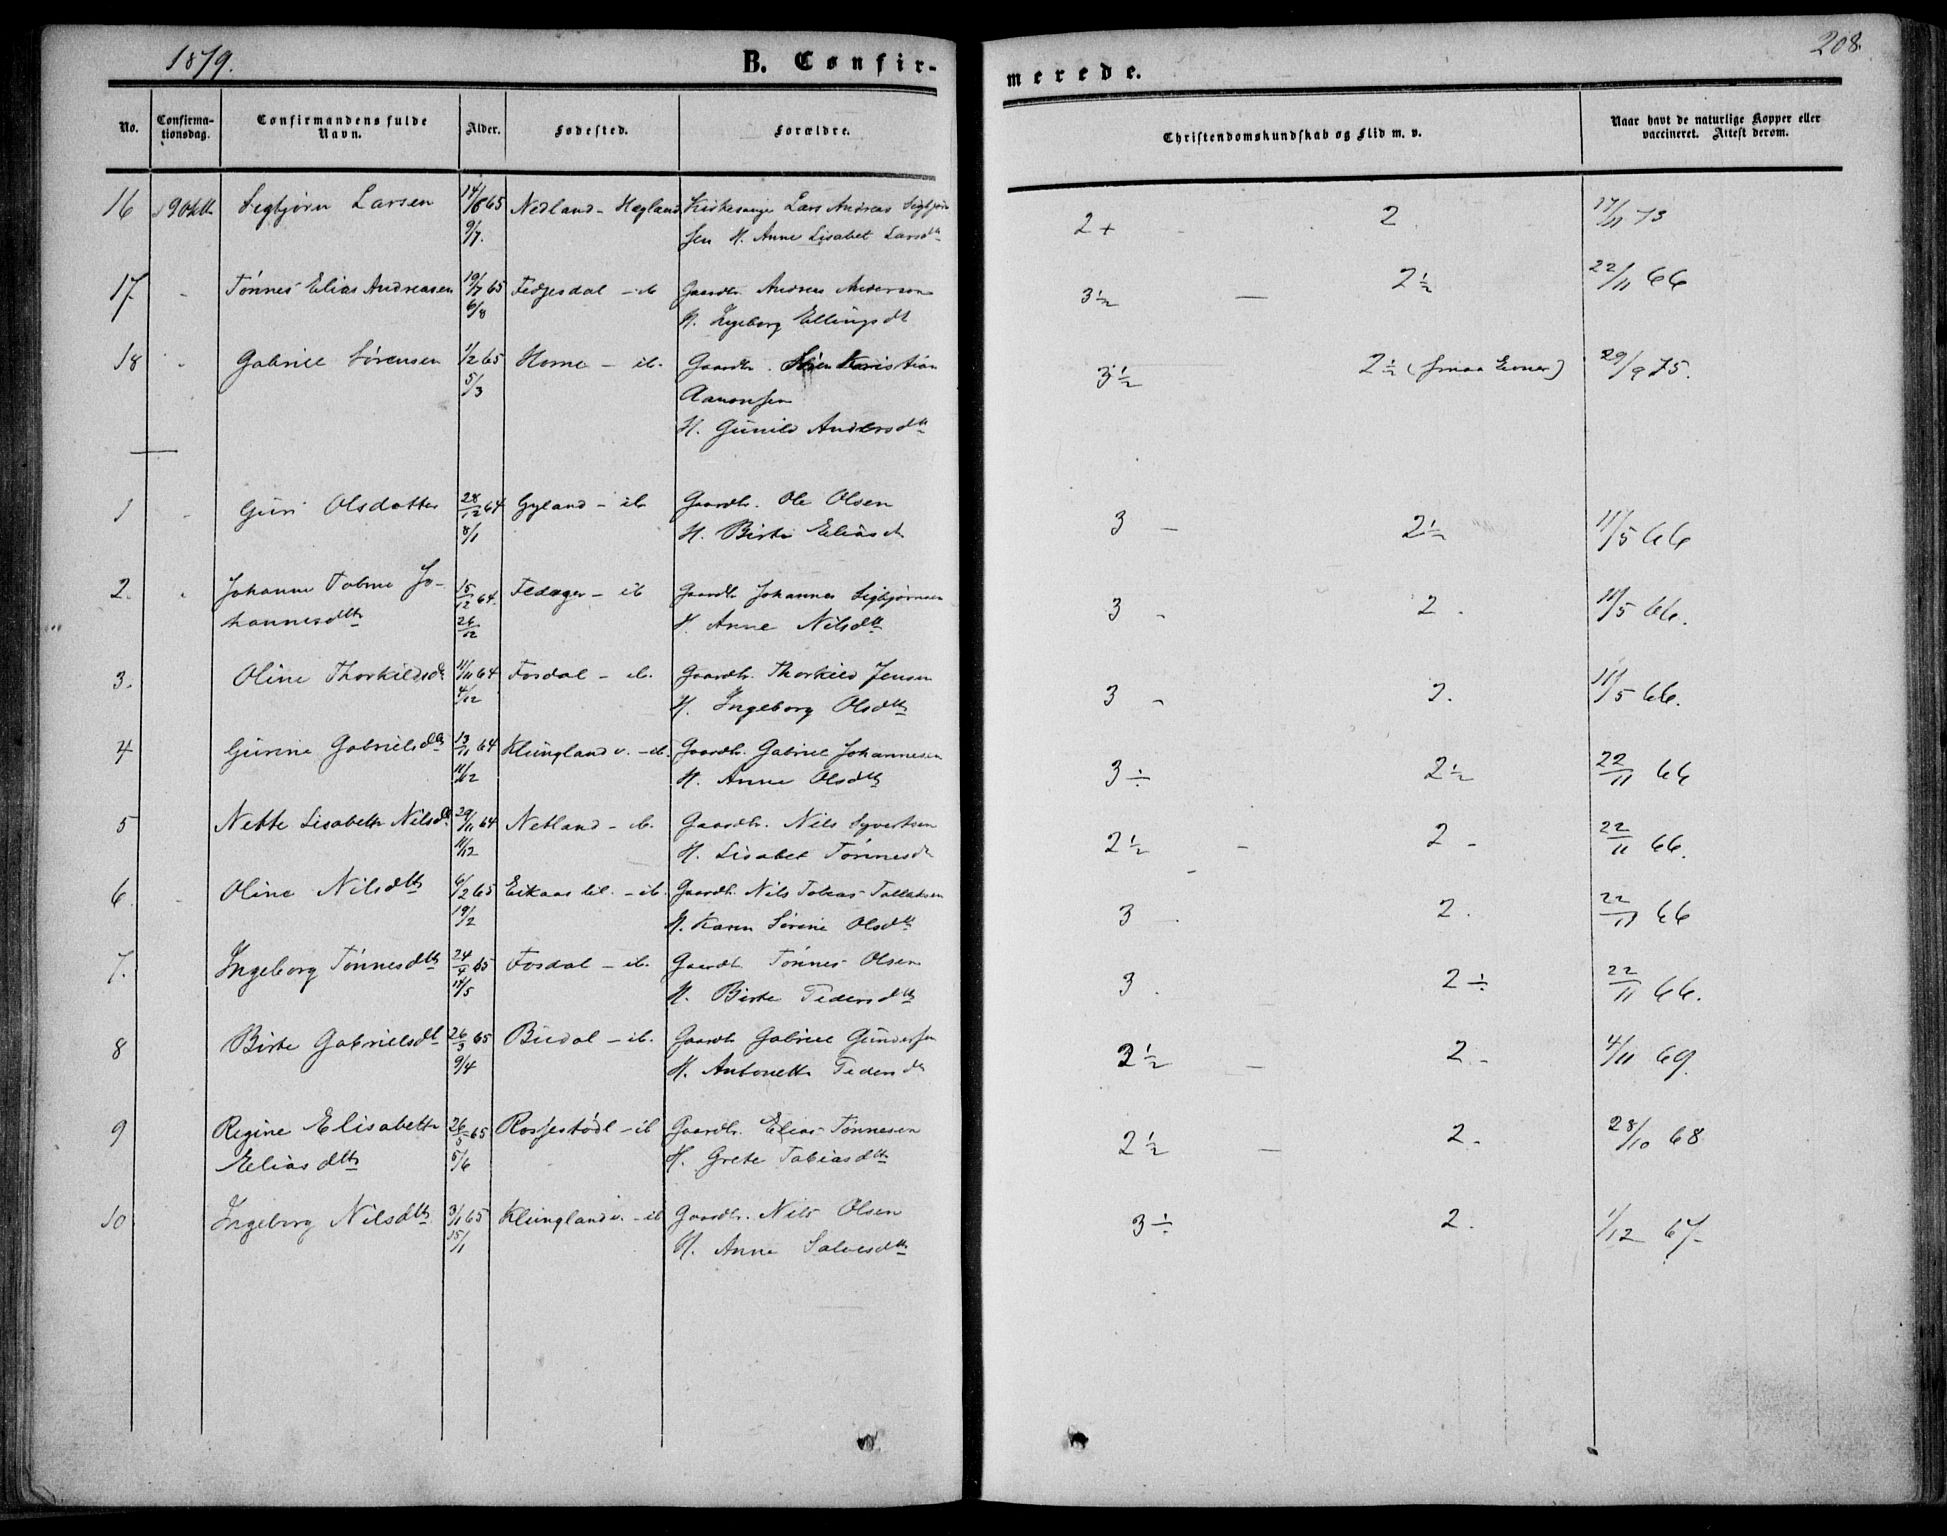 1879.
B. Confir-
merede.
208.
No.
Confirma-
tionsdag.
Confirmandens fulde
Navn.
Alder.
Fødested.
Forældre.
Christendomskundskab og Flid m. v.
Naar havt de naturlige Kopper eller
vaccineret. Attest derom.
16 Sigbjørn Larsen 14/6 65 Nedland - Hægland Kirkesanger Lars Andreas Sigbjørn 2+ - 2. 17/11 73
9/7. sen H. Anne Lisabet Larsdtr
17. - Tønnes Elias Andreasen 19/7 65 Fedjesdal - ib Gaardbr Andreas Anderson 3½ - 2½ 22/11 66
6/8 H. Ingeborg Ellingsdt
18 - Gabriel Sørensen 1/2 65 Home - ib. Gaardbr. Søren Kristian 3½ 2½ (smaa Evner) 29/9 75.
5/3 Aanonsen
H. Gunild Andersdtr
1 - Guri Olsdatter 28/12 64 Gyland - ib Gaardb. Ole Olsen 3 - 2½ 11/5 66
8/1 H. Birte Eliasdt
2. - Johanne Tobine Jo- 15/12 64. Fedager - ib Gaardb Johannes Sigbjørnsen 3 - 2. 11/5 66.
hannesdtr 26/12 H. Anne Nilsdtr
3. Oline Thorkildsdt 11/11 64 Fosdal - ib. Gaardb. Thorkild Jensen 3 - 2. 11/5 66.
4/12 H. Ingeborg Olsdtr
4 Gurine Gabrielsdtr 13/11 64 Klungland v. - ib. Gaardb. Gabriel Johannesen 3 ÷ 2½ 22/11 66
11/12 H. Anne Olsdtr
5 Nette Lisabeth Nilsdt. 29/11 64 Netland - ib. Gaardb. Nils Syvertsen 2½ - 2 - 22/11 66.
11/12 H. Lisabet Tønnesdt
6. Oline Nilsdtr 6/12 65 Eikaas lil. - ib. Gaardb. Nils Tobias Tallaksen 3. 2. 22/11 66
19/2 H. Karen Sørine Olsdtr
7. Ingeborg Tønnesdtr 24/4 65 Fosdal - ib. Gaardb. Tønnes Olsen 3. 2 ÷ 22/11 66.
17/5 H. Birte Pedersdtr
8 Birte Gabrielsdt 26/3 65 Budal - ib. Gaardb Gabriel Gundersen 2½ - 2 - 4/11 69.
9/4 H. Antonette Pedersdtr
9 Regine Elisabeth 26/5 65 Rossjestødl - ib Gaardb. Elias Tønnesen 2½ - 2. 28/10 68
Eliasdtr 5/6 H. Grete Tobiasdtr
10 Ingeborg Nilsdtr. 3/1 65 Klungland v. - ib Gaardb. Nils Olsen 3 ÷ 2. 1/12 67
15/1 H. Anne Salvesdtr